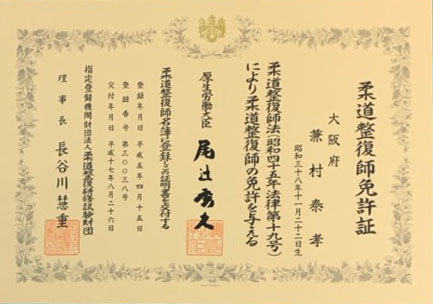 柔道整復師免許証
大阪府
兼村泰孝
昭和三十八年十一月二十二日生
柔道整復師法(昭和四十五年法律第十九号)
により柔道整復師の免許を与える
厚生労働大臣 尾辻秀久
柔道整復師名簿に登録しこの証明書を交付する
登録年月日 平成五年四月十五日
登録番号 第三〇〇三八号
交付年月日 平成十七年八月二十六日
指定登録機関財団法人柔道整復研修試験財団
理事長 長谷川慧重